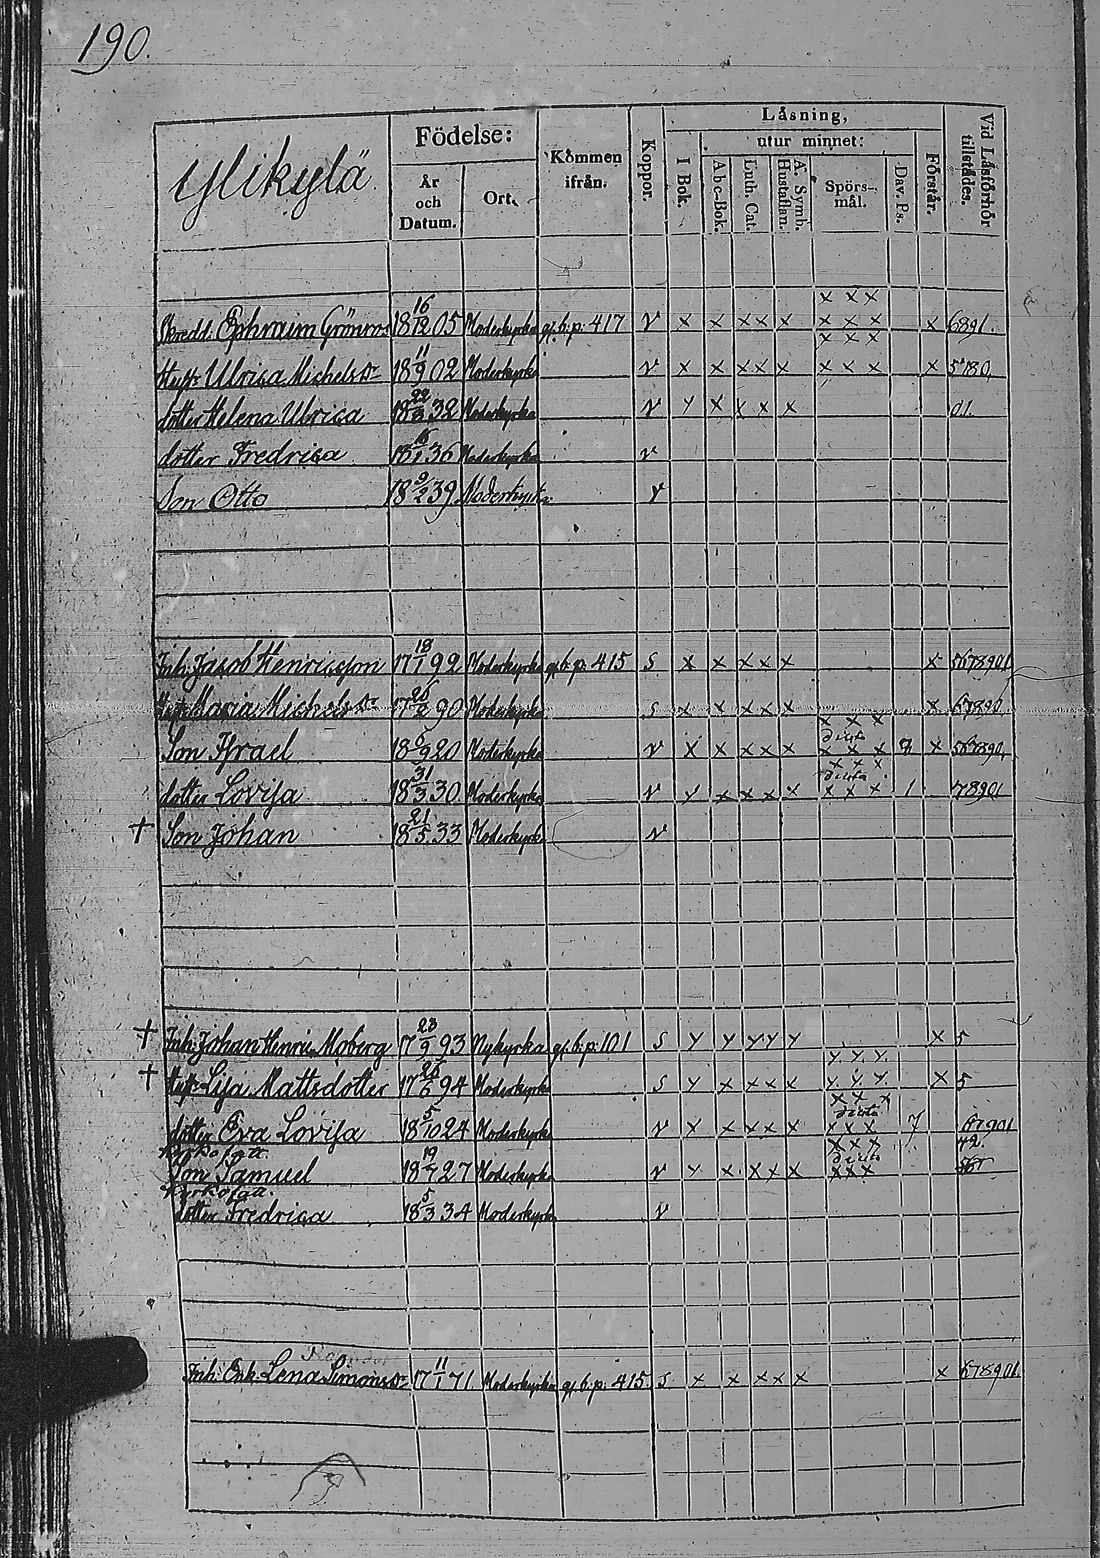 190.
Ylikylä
Födelse:
År och Datum.
Ort.
Kommen ifrån.
Koppor.
Läsning,
I Bok.
utur minnet:
Abc-Bok.
Luth. Cat.
Hustaflan.
A. Symb.
Spörs-mål.
Dav. Ps.
Förstår.
Vid Läsförhör tillstädes.
x x x
Skredd. Ephraim 18 16/12 05 Moderkyrka gl. b. p. 417 v x x x x x x x x x 6891.
x x x
Hust. Ulrica Michelsdr 18 11/9 02 Moderkyrka v x x x x x x x x x 5780.
dotter Helena Ulrica 18 22/8 32 Moderkyrka v y x x x x 01.
dotter Fredrica 18 16/1 36 Moderkyrka v
Son Otto 18 9/2 39 Moderkyrka v
Inh. Jacob Henricsson 17 18/1 92 Moderkyrka gl. b. p. 415 s x x x x x x 5678901
Hust. Maria Michelsdr 17 26/2 90 Moderkyrka s x x x x x x 67890
x x x
dicta
Son Israel 18 5/9 20 Moderkyrka v x x x x x x x x x 567890
x x x
dicta
dotter Lovisa 18 31/3 30 Moderkyrka v y x x x x x x x 1 78901
† Son Johan 18 21/5 33 Moderkyrka v
† Inh. Johan Henric Moberg 17 23/9 93 Nykyrka gl. b. p. 101 s y y y y y x 5
y y y
† Hust. Lisa Mattsdotter 17 26/6 94 Moderkyrka s y x x x x y y y x 5
x x x
dicta
dotter Eva Lovisa 18 5/10 24 Moderkyrka v y x x x x x x x 7 67901
x x x 42.
dicta
Son Samuel 18 19/7 27 Moderkyrka v y x x x x x x x
dotter Fredrica 18 5/3 34 Moderkyrka v
Inh. Enk. Lena Simonsdr 17 11/1 71 Moderkyrka gl. b. p. 415 s x x x x x x 678901.